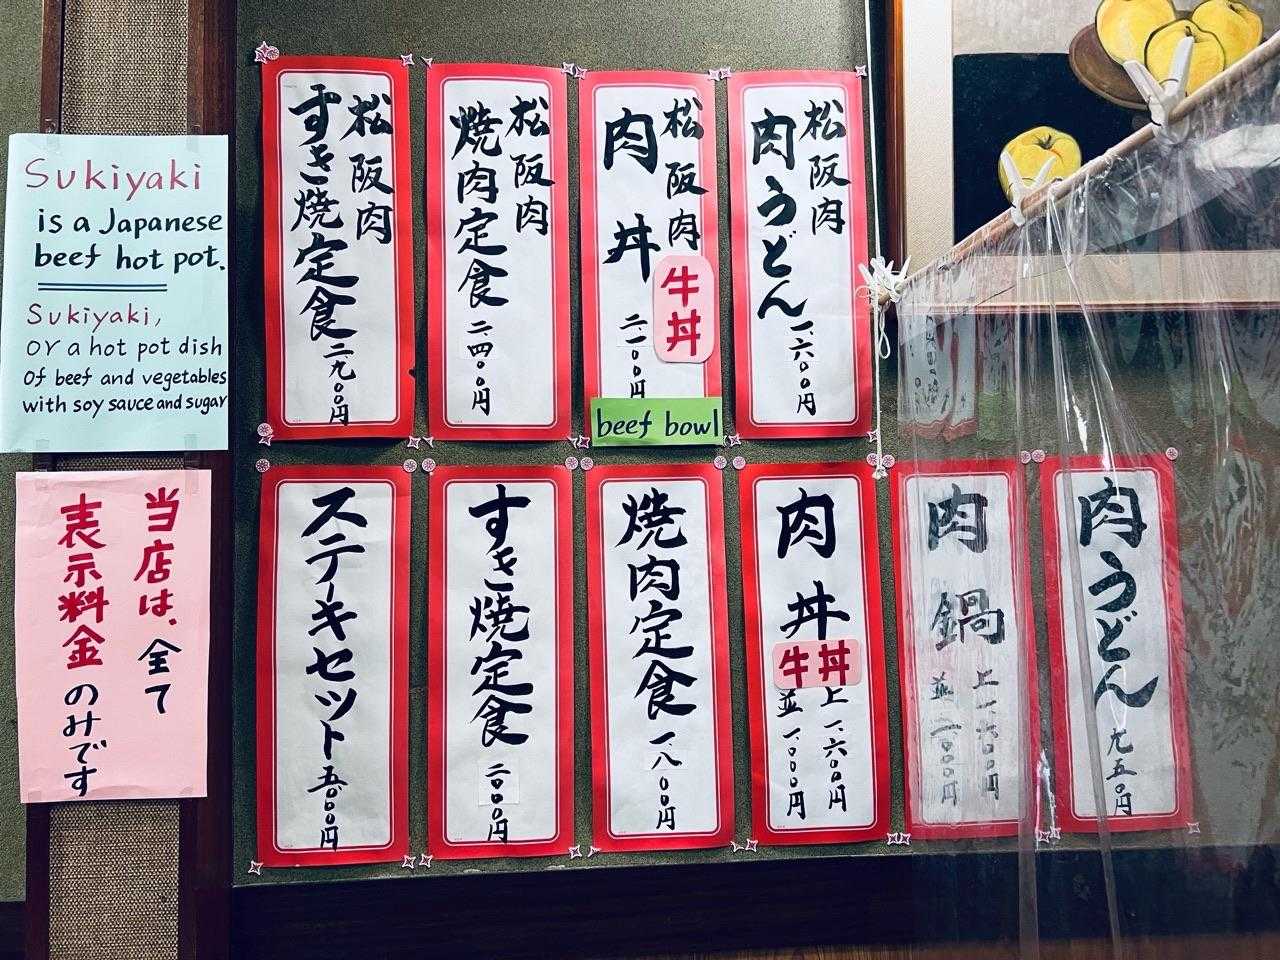 Sukiyaki
is a Japanese
beef hot pot.
Sukiyaki,
or a hot pot dish
Of beef and vegetables
with soy sauce and sugar
当店は、全て
表示料金のみです
松阪肉
すき焼定食
二九〇〇円
松阪肉
焼肉定食
二、四〇〇円
松阪肉
肉丼
牛丼
二一〇〇円
beef bowl
松阪肉
肉うどん
一、六〇〇円
ステーキセット
五、〇〇〇円
すき焼定食
二〇〇〇円
焼肉定食
一、八〇〇円
肉丼
牛丼
上 一、六〇〇円
並 一、〇〇〇円
肉鍋
上 一、六〇〇円
並 一、〇〇〇円
肉うどん
九五〇円